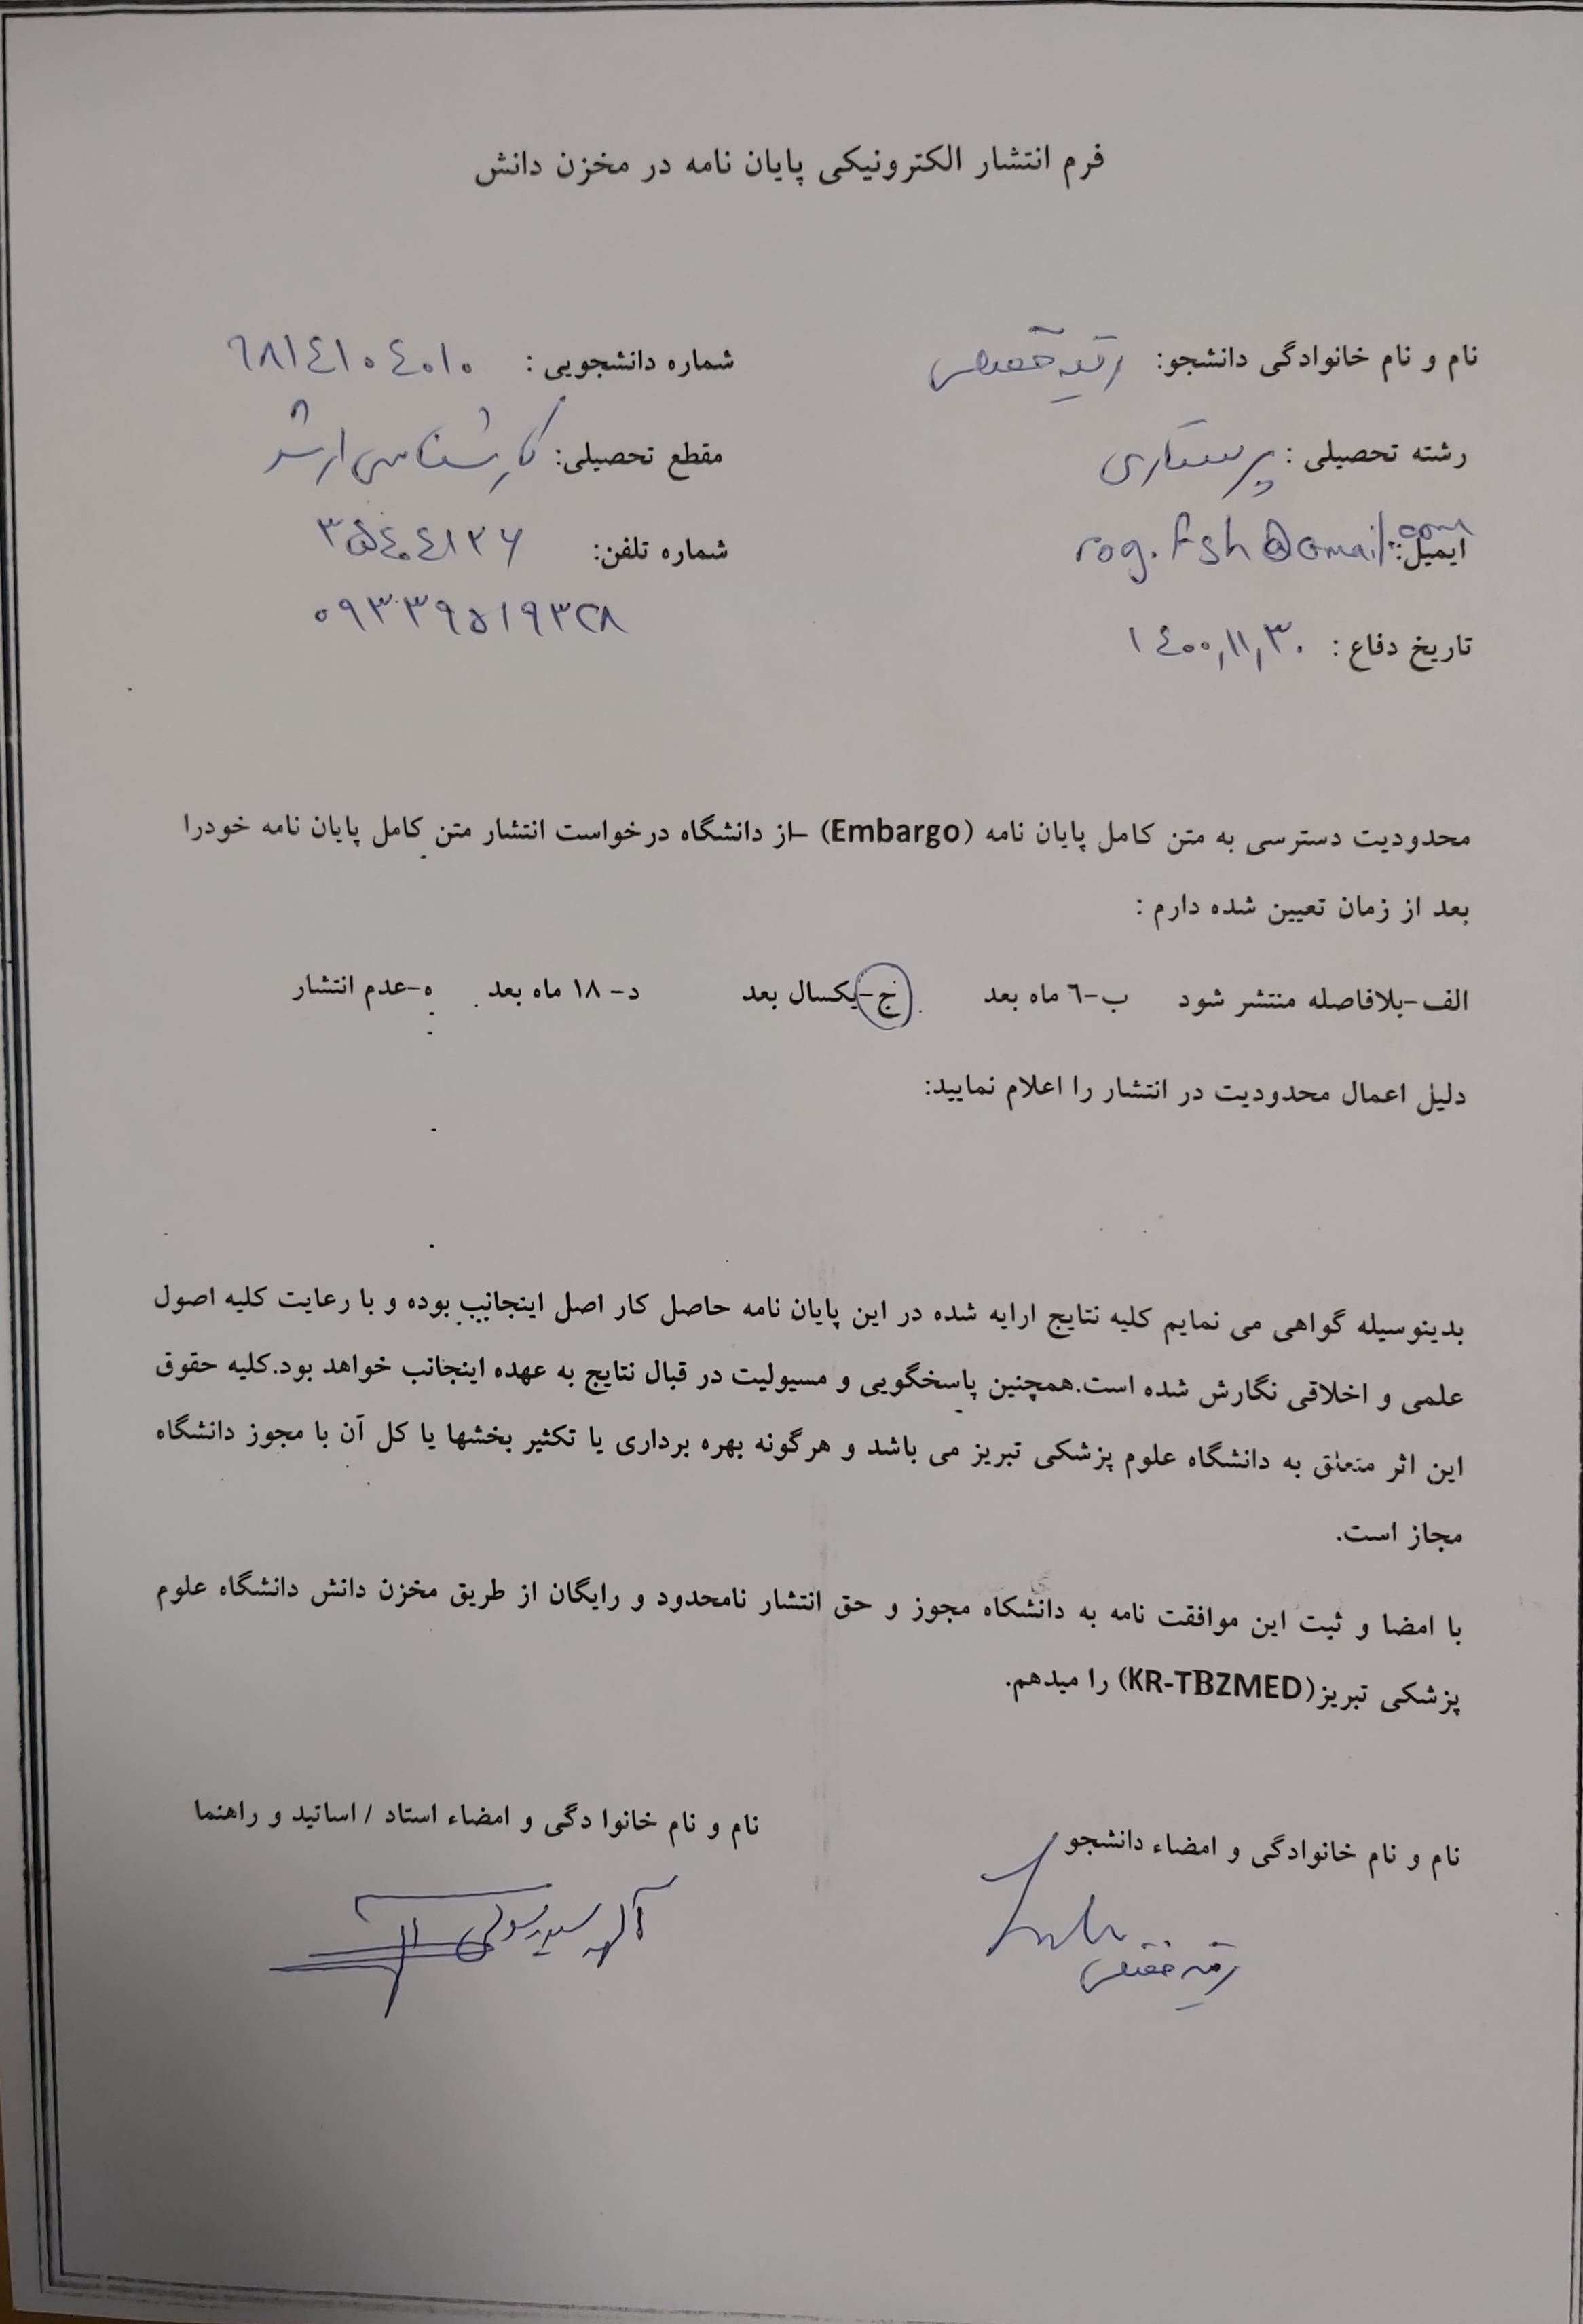 فرم انتشار الکترونیکی پایان نامه در مخزن دانش
نام و نام خانوادگی دانشجو: رقیه شماره دانشجویی : ۹۸۱٤۱۰٤۰۱۰
رشته تحصیلی : پرستاری مقطع تحصیلی: کارشناسی ارشد
ایمیل: rog.fsh@Gmail.com شماره تلفن: ۳۵٤۰٤۱۲۶
۰۹۳۳۹۵۱۹۳۲۸
تاریخ دفاع : ۱٤۰۰,۱۱,۳۰
محدودیت دسترسی به متن کامل پایان نامه (Embargo) –از دانشگاه درخواست انتشار متن کامل پایان نامه خودرا
بعد از زمان تعیین شده دارم :
الف-بلافاصله منتشر شود ب-٦ ماه بعد ج-یکسال بعد د- ۱۸ ماه بعد ه-عدم انتشار
دلیل اعمال محدودیت در انتشار را اعلام نمایید:
بدینوسیله گواهی می نمایم کلیه نتایج ارایه شده در این پایان نامه حاصل کار اصل اینجانب بوده و با رعایت کلیه اصول
علمی و اخلاقی نگارش شده است.همچنین پاسخگویی و مسیولیت در قبال نتایج به عهده اینجانب خواهد بود.کلیه حقوق
این اثر متعلق به دانشگاه علوم پزشکی تبریز می باشد و هرگونه بهره برداری یا تکثیر بخشها یا کل آن با مجوز دانشگاه
مجاز است.
با امضا و ثبت این موافقت نامه به دانشکاه مجوز و حق انتشار نامحدود و رایگان از طریق مخزن دانش دانشگاه علوم
پزشکی تبریز(KR-TBZMED) را میدهم.
نام و نام خانوادگی و امضاء دانشجو نام و نام خانوا دگی و امضاء استاد / اساتید و راهنما
رقیه